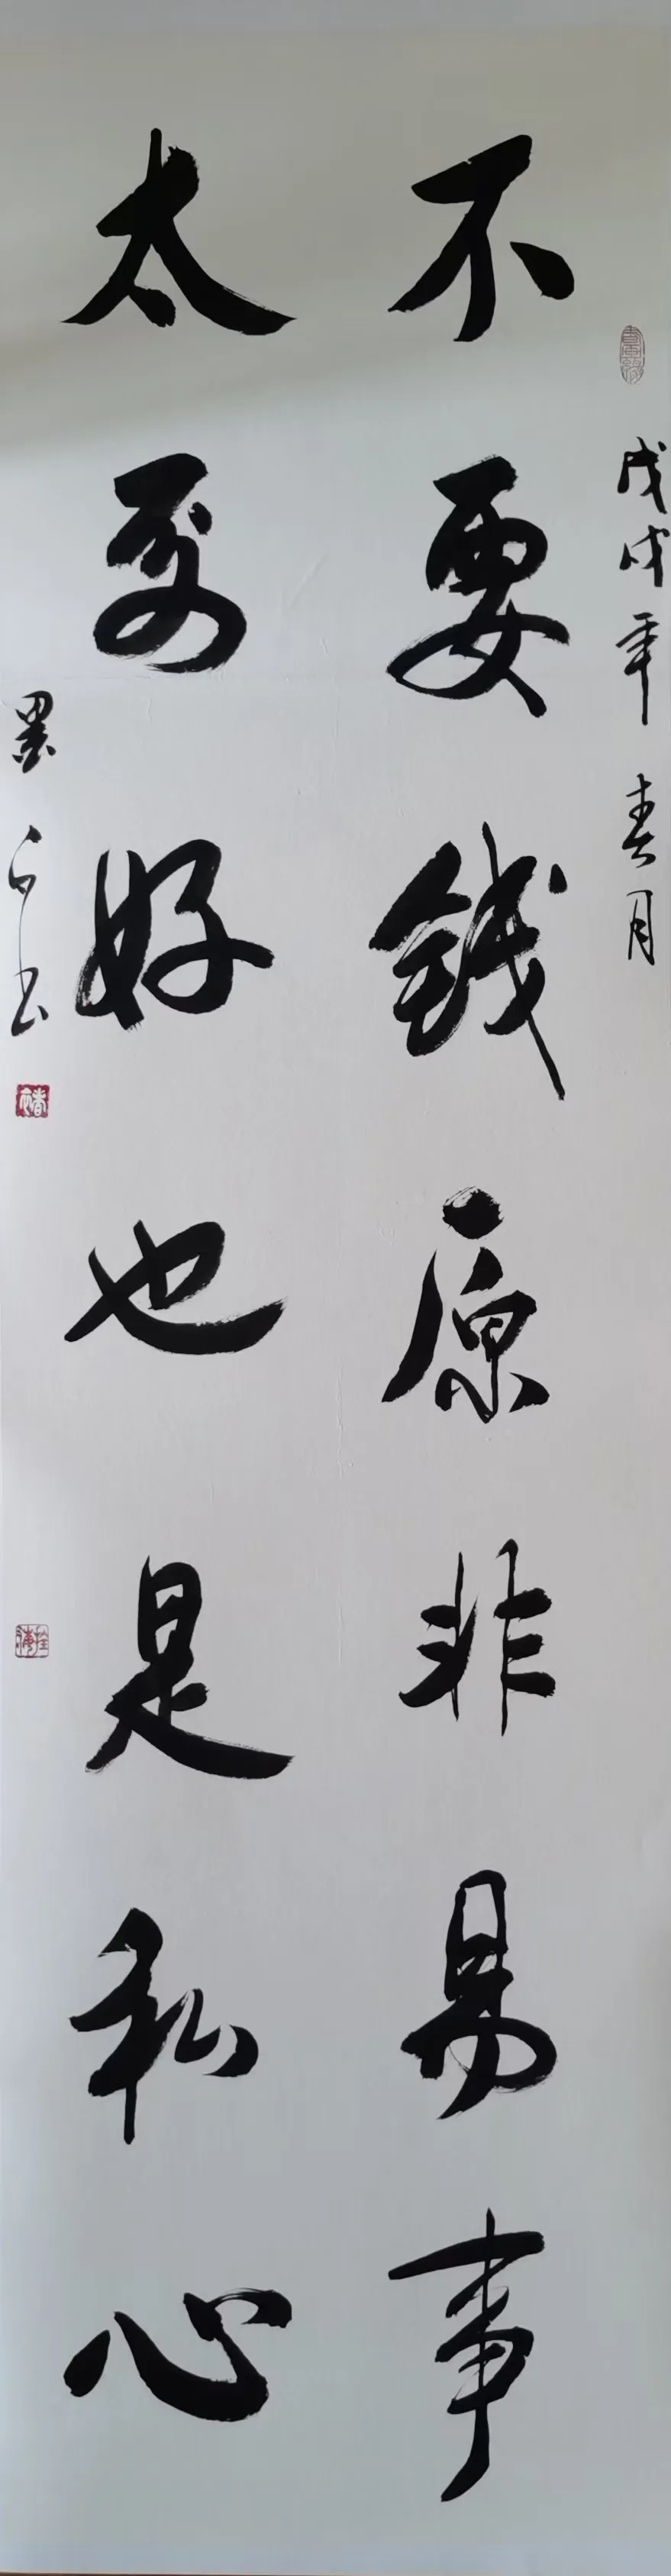 戊戌年春月
不要钱原非易事
太要好也是私心
墨 书